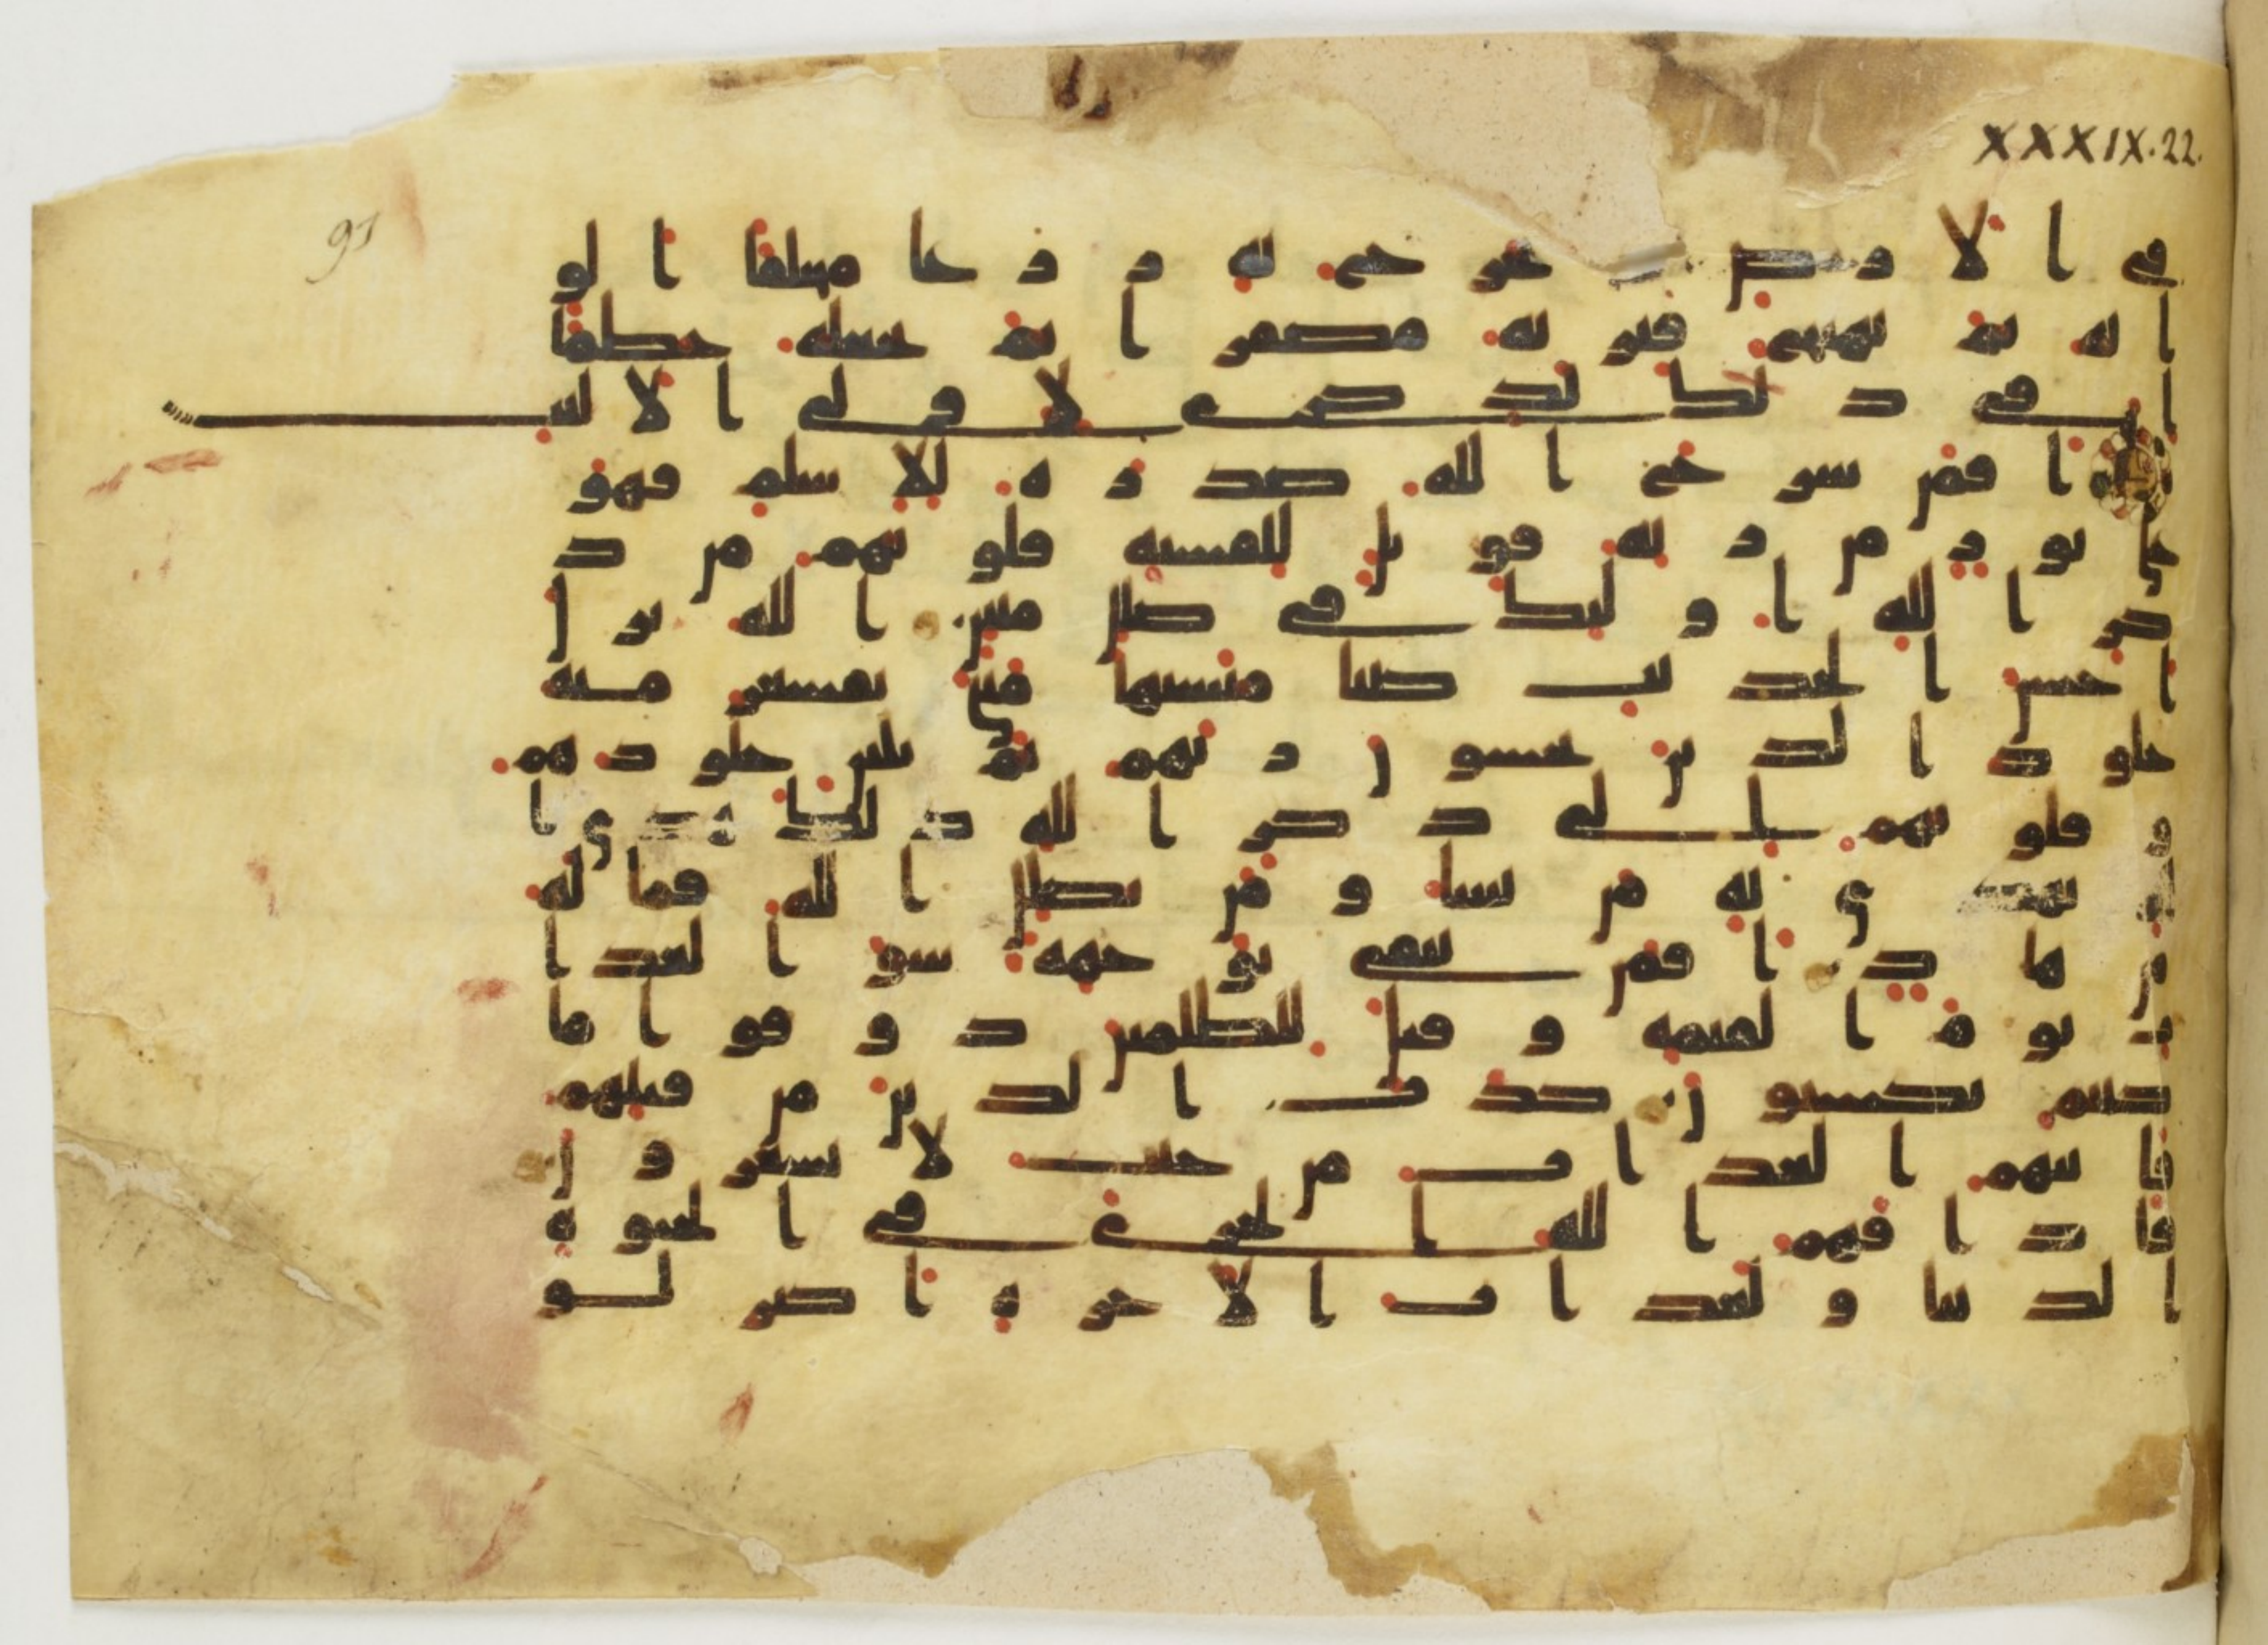 XXXIX.22.
91
في الارض ثم يخرج به زرعا مختلفا الو
انه ثم يهيج فتريه مصفرا ثم يجعله حطما
ان في ذلك لذكرى لاولي الالبـ
ب افمن شرح الله صدره للاسلم فهو
على نور من ربه فويل للقسية قلوبهم من ذ
كر الله اولئك في ضلل مبين الله نزل
احسن الحديث كتبا متشبها مثني تقشعر منه
جلود الذين يخشون ربهم ثم تلين جلودهم
و قلوبهم الى ذكر الله ذلك هدى ا
لله يهدي به من يشا ومن يضلل الله فما له
من هاد افمن يتقي بوجهه سو العذا
ب يوم القيمة وقيل للظلمين ذوقوا ما
كنتم تكسبون كذب الذين من قبلهم
فاتيهم العذاب من حيث لا يشعرون
فاذاقهم الله الخزي في الحيوة
الدنيا ولعذاب الاخرة اكبر لو